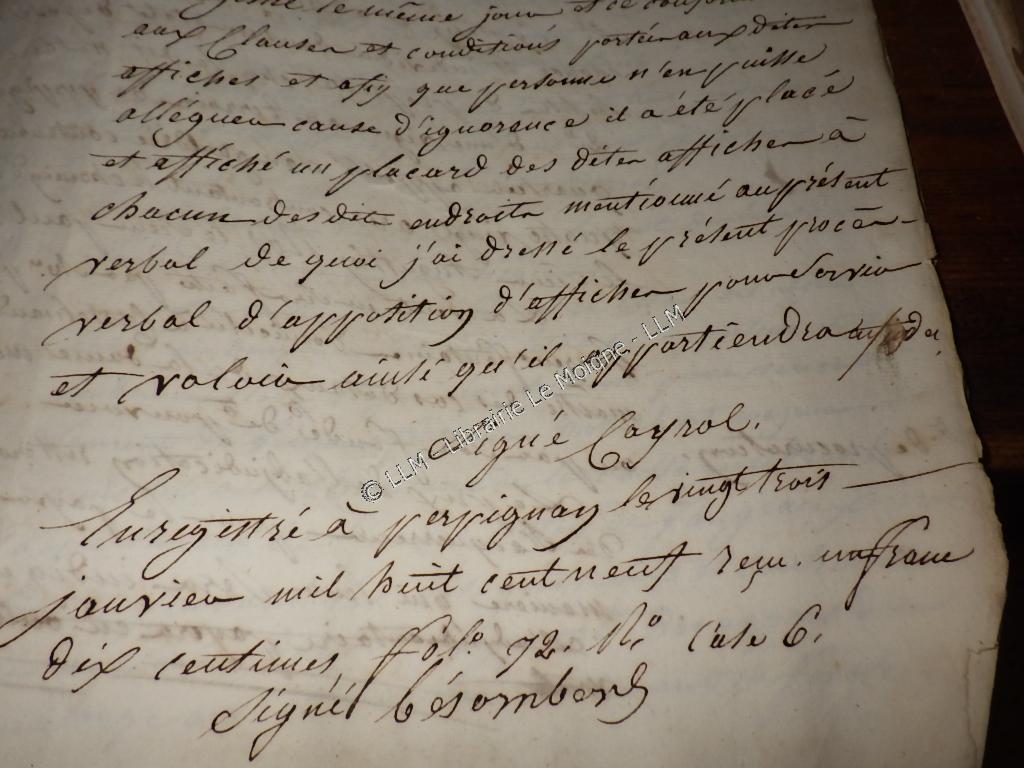 le même jour et ce
aux Clauses et conditions portées aux dites
affiches et afin que personne n'en puisse
alléguer cause d'ignorance il a été placé
et affiché un placard des dites affiches à
chacun des dits endroits mentionné au présent
verbal de quoi j'ai dressé le présent procès-
verbal d'apposition d'affiches pour servir
et valoir ainsi qu'il appartiendra
Signé Cayrol.
Enregistré à perpignan le vingt trois
janvier mil huit cent neuf reçu. un franc
dix centimes, fol.° 72. R.° Case 6.
Signé
© LLM - Librairie Le Moigne - LLM